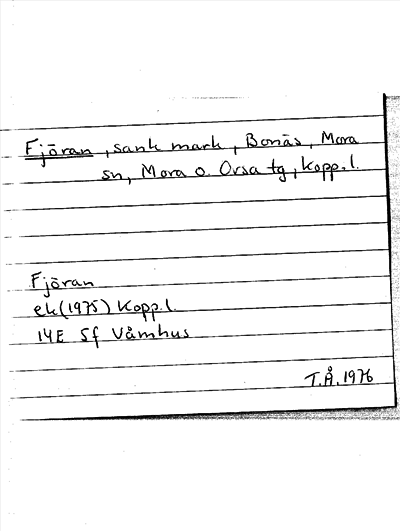 Fjöran, sank mark, Bonäs, Mora
sn, Mora o. Orsa tg, Kopp. l.
Fjöran
ek (1975) Kopp. l.
14E 5f Våmhus
T.Å. 1976